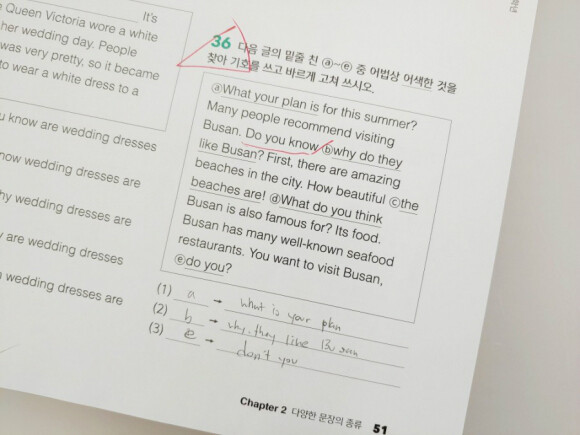 It's
Queen Victoria wore a white
her wedding day. People
was very pretty, so it became
to wear a white dress to a
know are wedding dresses
now wedding dresses are
hy wedding dresses are
y are wedding dresses
wedding dresses are
36 다음 글의 밑줄 친 ⓐ~ⓔ 중 어법상 어색한 것을
찾아 기호를 쓰고 바르게 고쳐 쓰시오.
ⓐWhat your plan is for this summer?
Many people recommend visiting
Busan. Do you know ⓑwhy do they
like Busan? First, there are amazing
beaches in the city. How beautiful ⓒthe
beaches are! ⓓWhat do you think
Busan is also famous for? Its food.
Busan has many well-known seafood
restaurants. You want to visit Busan,
ⓔdo you?
(1) a → what is your plan
(2) b → why they like Busan
(3) e → don't you
Chapter 2 다양한 문장의 종류 51